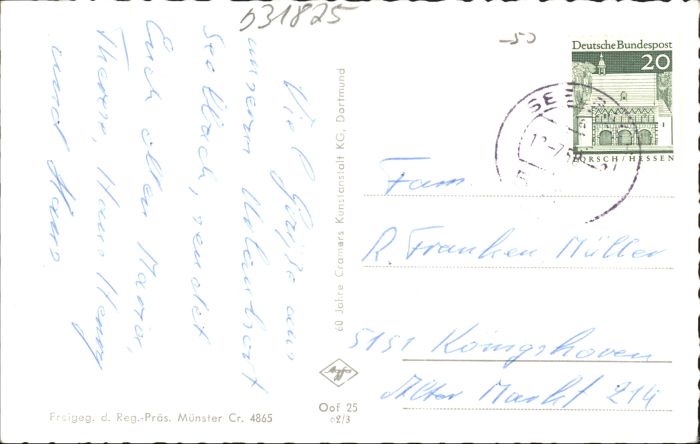 b31825
-50
Deutsche Bundespost
20
LORSCH / HESSEN
SEE
Viele Grüße aus
unserem Urlaubsort
Seelbach, sendet
Euch allen Maria,
Therese, Hans Henny
und Hans
60 Jahre Cramers Kunstanstalt KG, Dortmund
Fam.
R. Franken Müller
5151 Königshoven
Alter Markt 214
Agfa
Freigeg. d. Reg.-Präs. Münster Cr. 4865
Oof 25
02/3